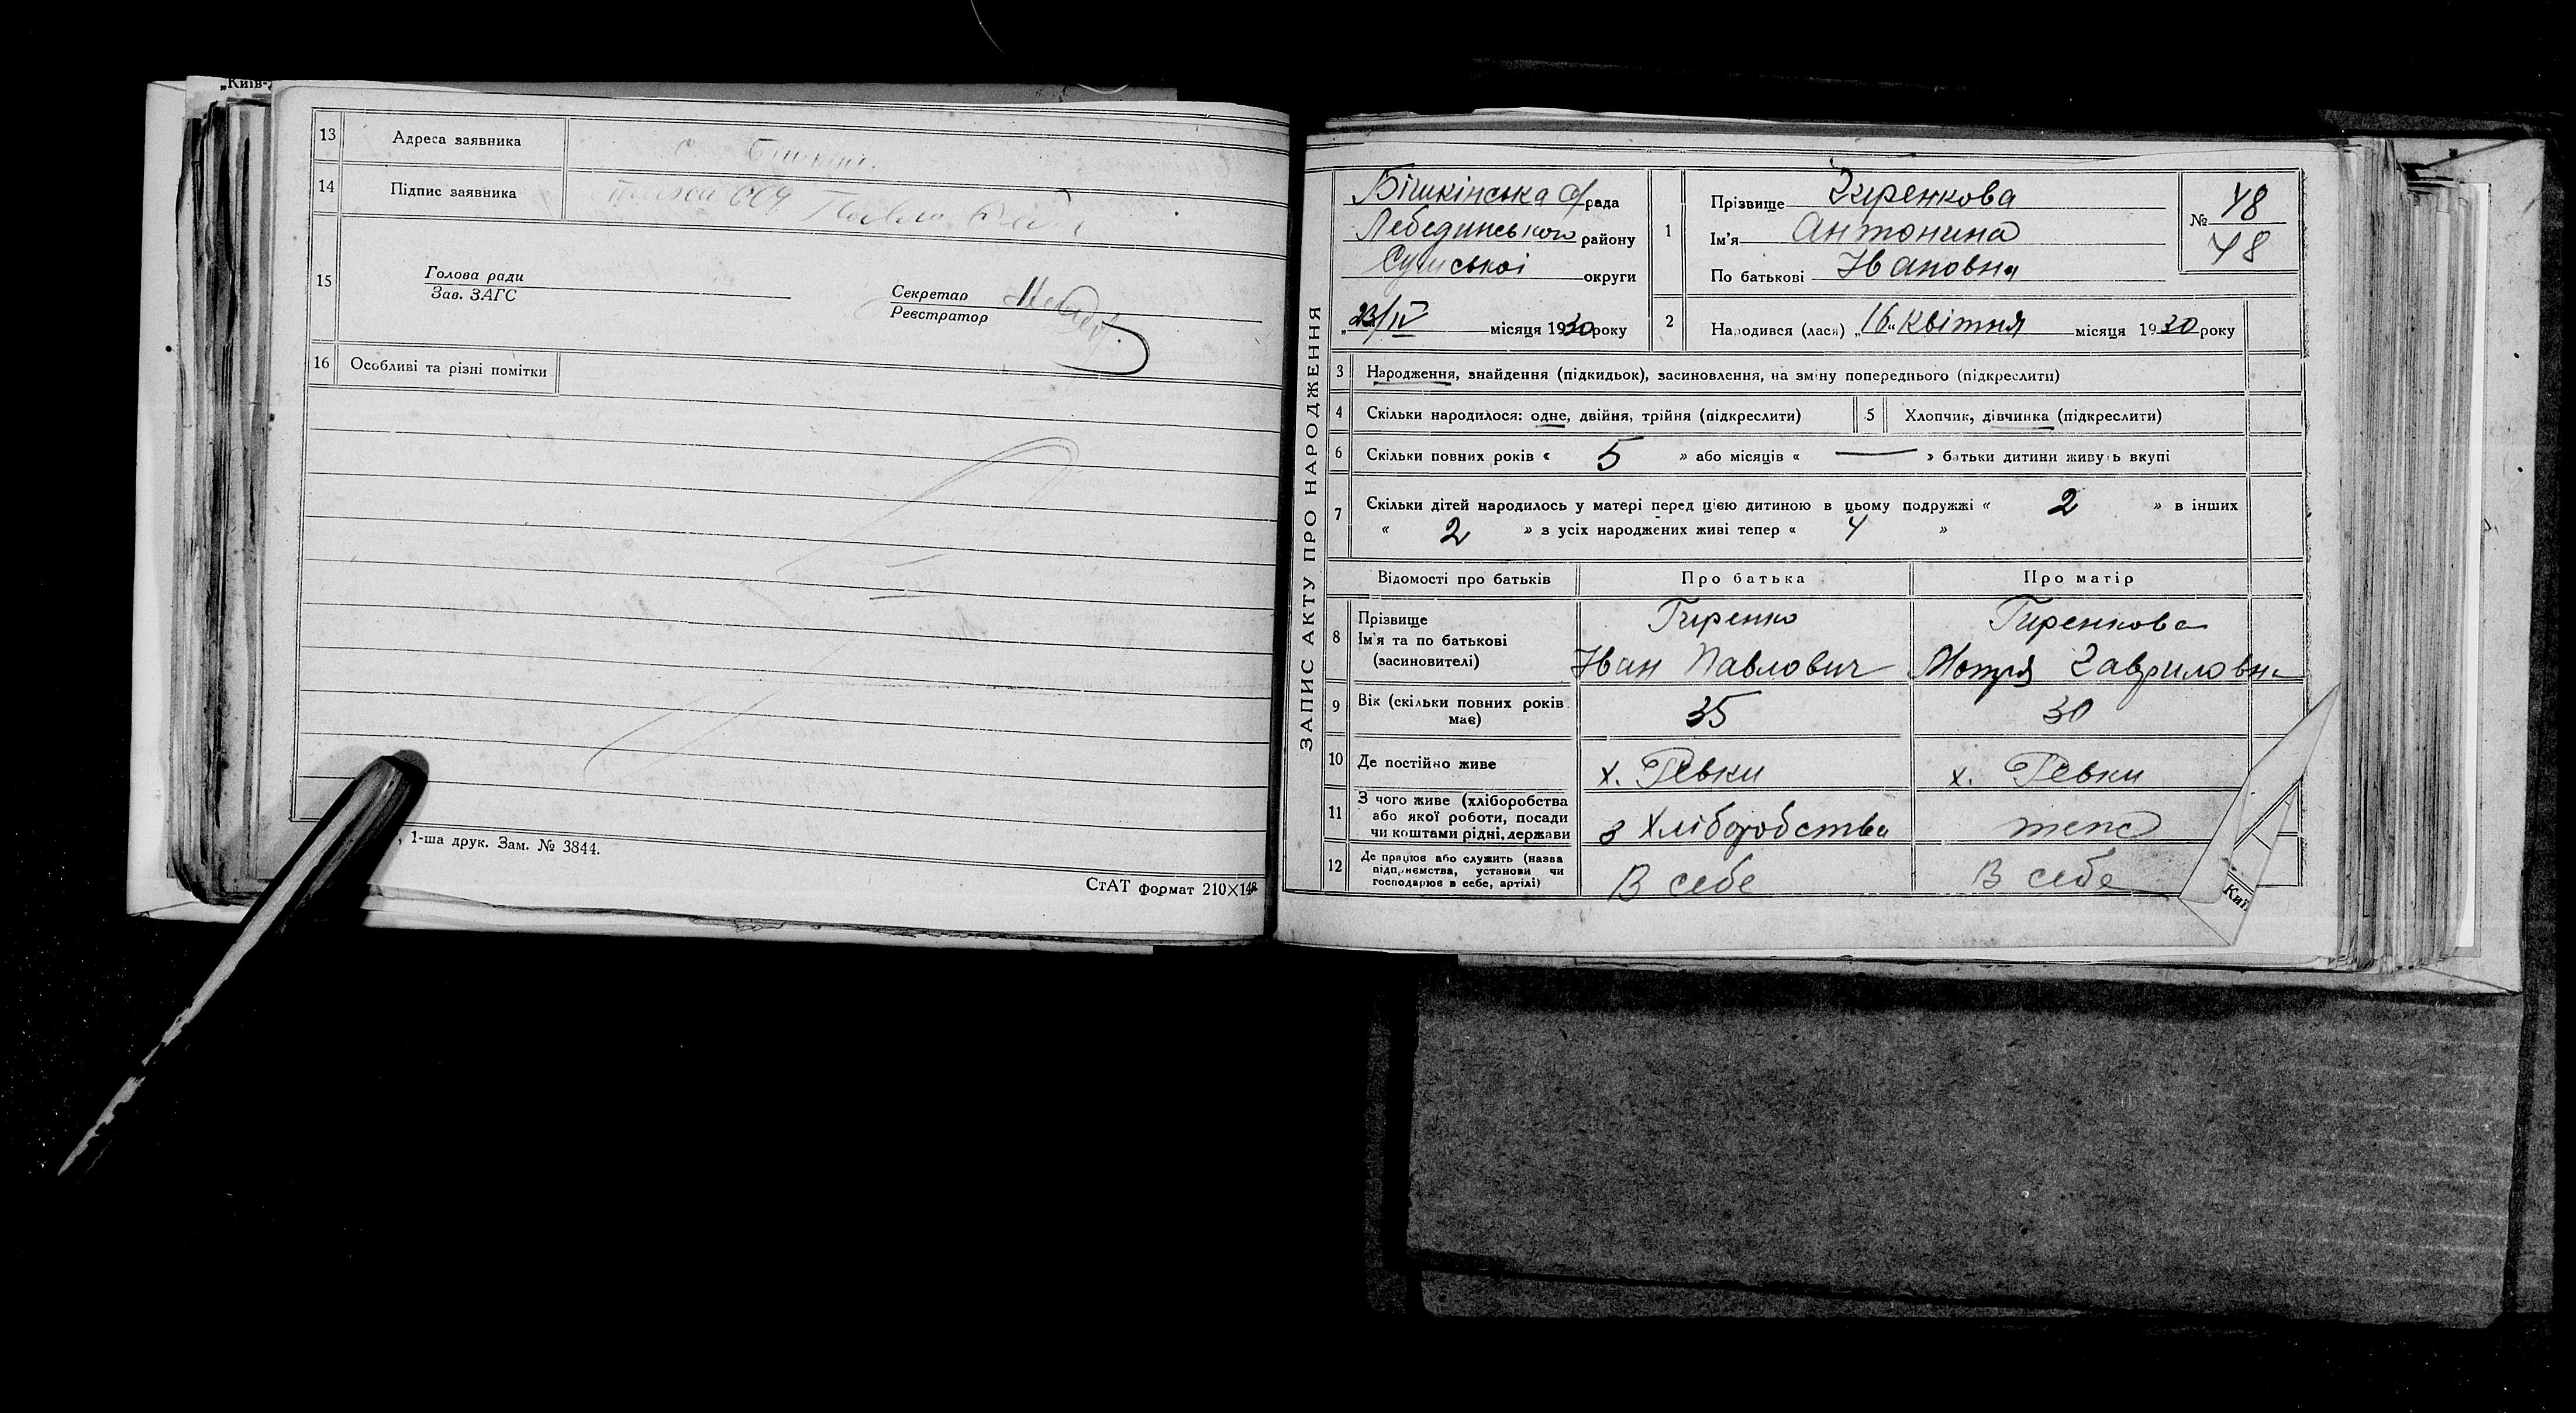 „Київ-
13 Адреса заявника с. Бишкінь.
14 Підпис заявника Павло
15 Голова ради
Зав. ЗАГС
Секретар
Реєстратор
16 Особливі та різні помітки
, 1-ша друк. Зам. № 3844.
СтАТ формат 210×148
ЗАПИС АКТУ ПРО НАРОДЖЕННЯ
Бішкінська с/рада
Лебединського району
Сумської округи
„23/IV місяця 1930 року
1 Прізвище Гиренкова
Ім'я Антонина
По батькові Івановна
№ 48
48
2 Народився (лася) „16“ Квітня місяця 1930 року
3 Народження, знайдення (підкидьок), засиновлення, на зміну попереднього (підкреслити)
4 Скільки народилося: одне, двійня, трійня (підкреслити) 5 Хлопчик, дівчинка (підкреслити)
6 Скільки повних років « 5 » або місяців « — » батьки дитини живуть вкупі
7 Скільки дітей народилось у матері перед цією дитиною в цьому подружжі « 2 » в інших
« 2 » з усіх народжених живі тепер « 4 »
Відомості про батьків Про батька Про матір
8 Прізвище Гиренко Гиренкова
Ім'я та по батькові
(засиновителі) Іван Павлович Мотря Гавриловна
9 Вік (скільки повних років
має) 35 30
10 Де постійно живе х. Ревки х. Ревки
11 З чого живе (хліборобства
або якої роботи, посади
чи коштами рідні, держави з Хліборобства теж
12 Де працює або служить (назва
підприємства, установи чи
господарює в себе, артілі) В себе В себе
Киї